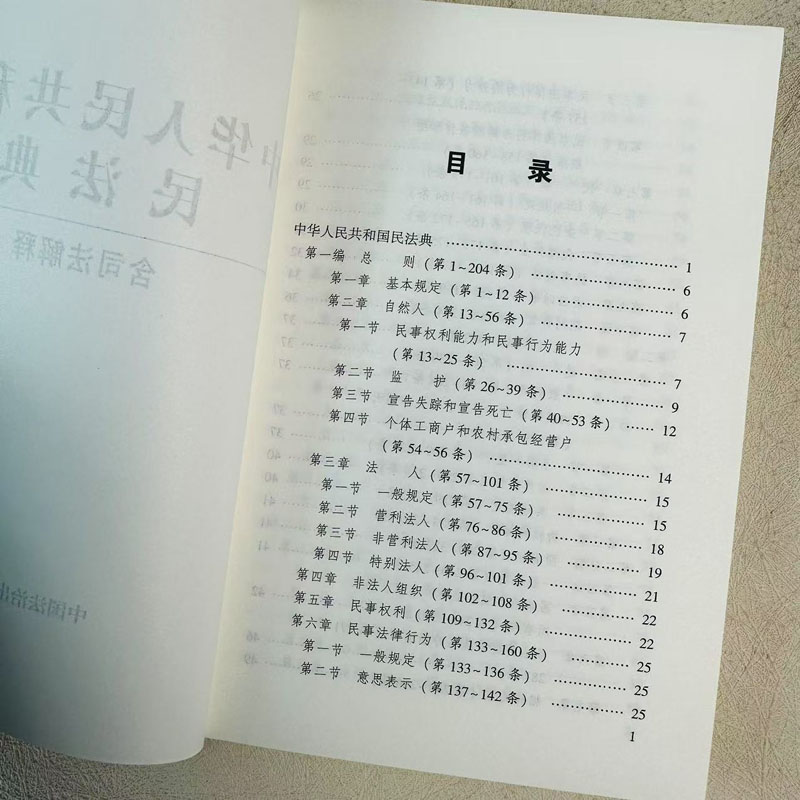 目 录
中华人民共和国民法典 …… 1
第一编 总 则（第1~204条） …… 6
第一章 基本规定（第1~12条） …… 6
第二章 自然人（第13~56条） …… 7
第一节 民事权利能力和民事行为能力
（第13~25条） …… 7
第二节 监 护（第26~39条） …… 9
第三节 宣告失踪和宣告死亡（第40~53条） …… 12
第四节 个体工商户和农村承包经营户
（第54~56条） …… 14
第三章 法 人（第57~101条） …… 15
第一节 一般规定（第57~75条） …… 15
第二节 营利法人（第76~86条） …… 18
第三节 非营利法人（第87~95条） …… 19
第四节 特别法人（第96~101条） …… 21
第四章 非法人组织（第102~108条） …… 22
第五章 民事权利（第109~132条） …… 22
第六章 民事法律行为（第133~160条） …… 25
第一节 一般规定（第133~136条） …… 25
第二节 意思表示（第137~142条） …… 25
1
中华人民共和
民法典
含司法解释
中国法治出